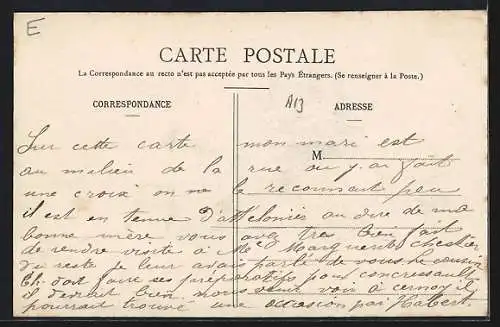 E
CARTE POSTALE
La Correspondance au recto n'est pas acceptée par tous les Pays Étrangers. (Se renseigner à la Poste.)
CORRESPONDANCE
A13
ADRESSE
M
Sur cette carte mon mari est
au milieu de la rue ou j'ai fait
une croix on ne le reconnait peu
il est en tenue au dire de ma
bonne mère vous avez très bien fait
de rendre visite à Marguerite
du reste je leur avais parlé de vous le cousin
Ch. doit faire ses préparatifs pour
il devrait bien nous venir voir à cernoy il
pourrait trouver une occasion par Habert.